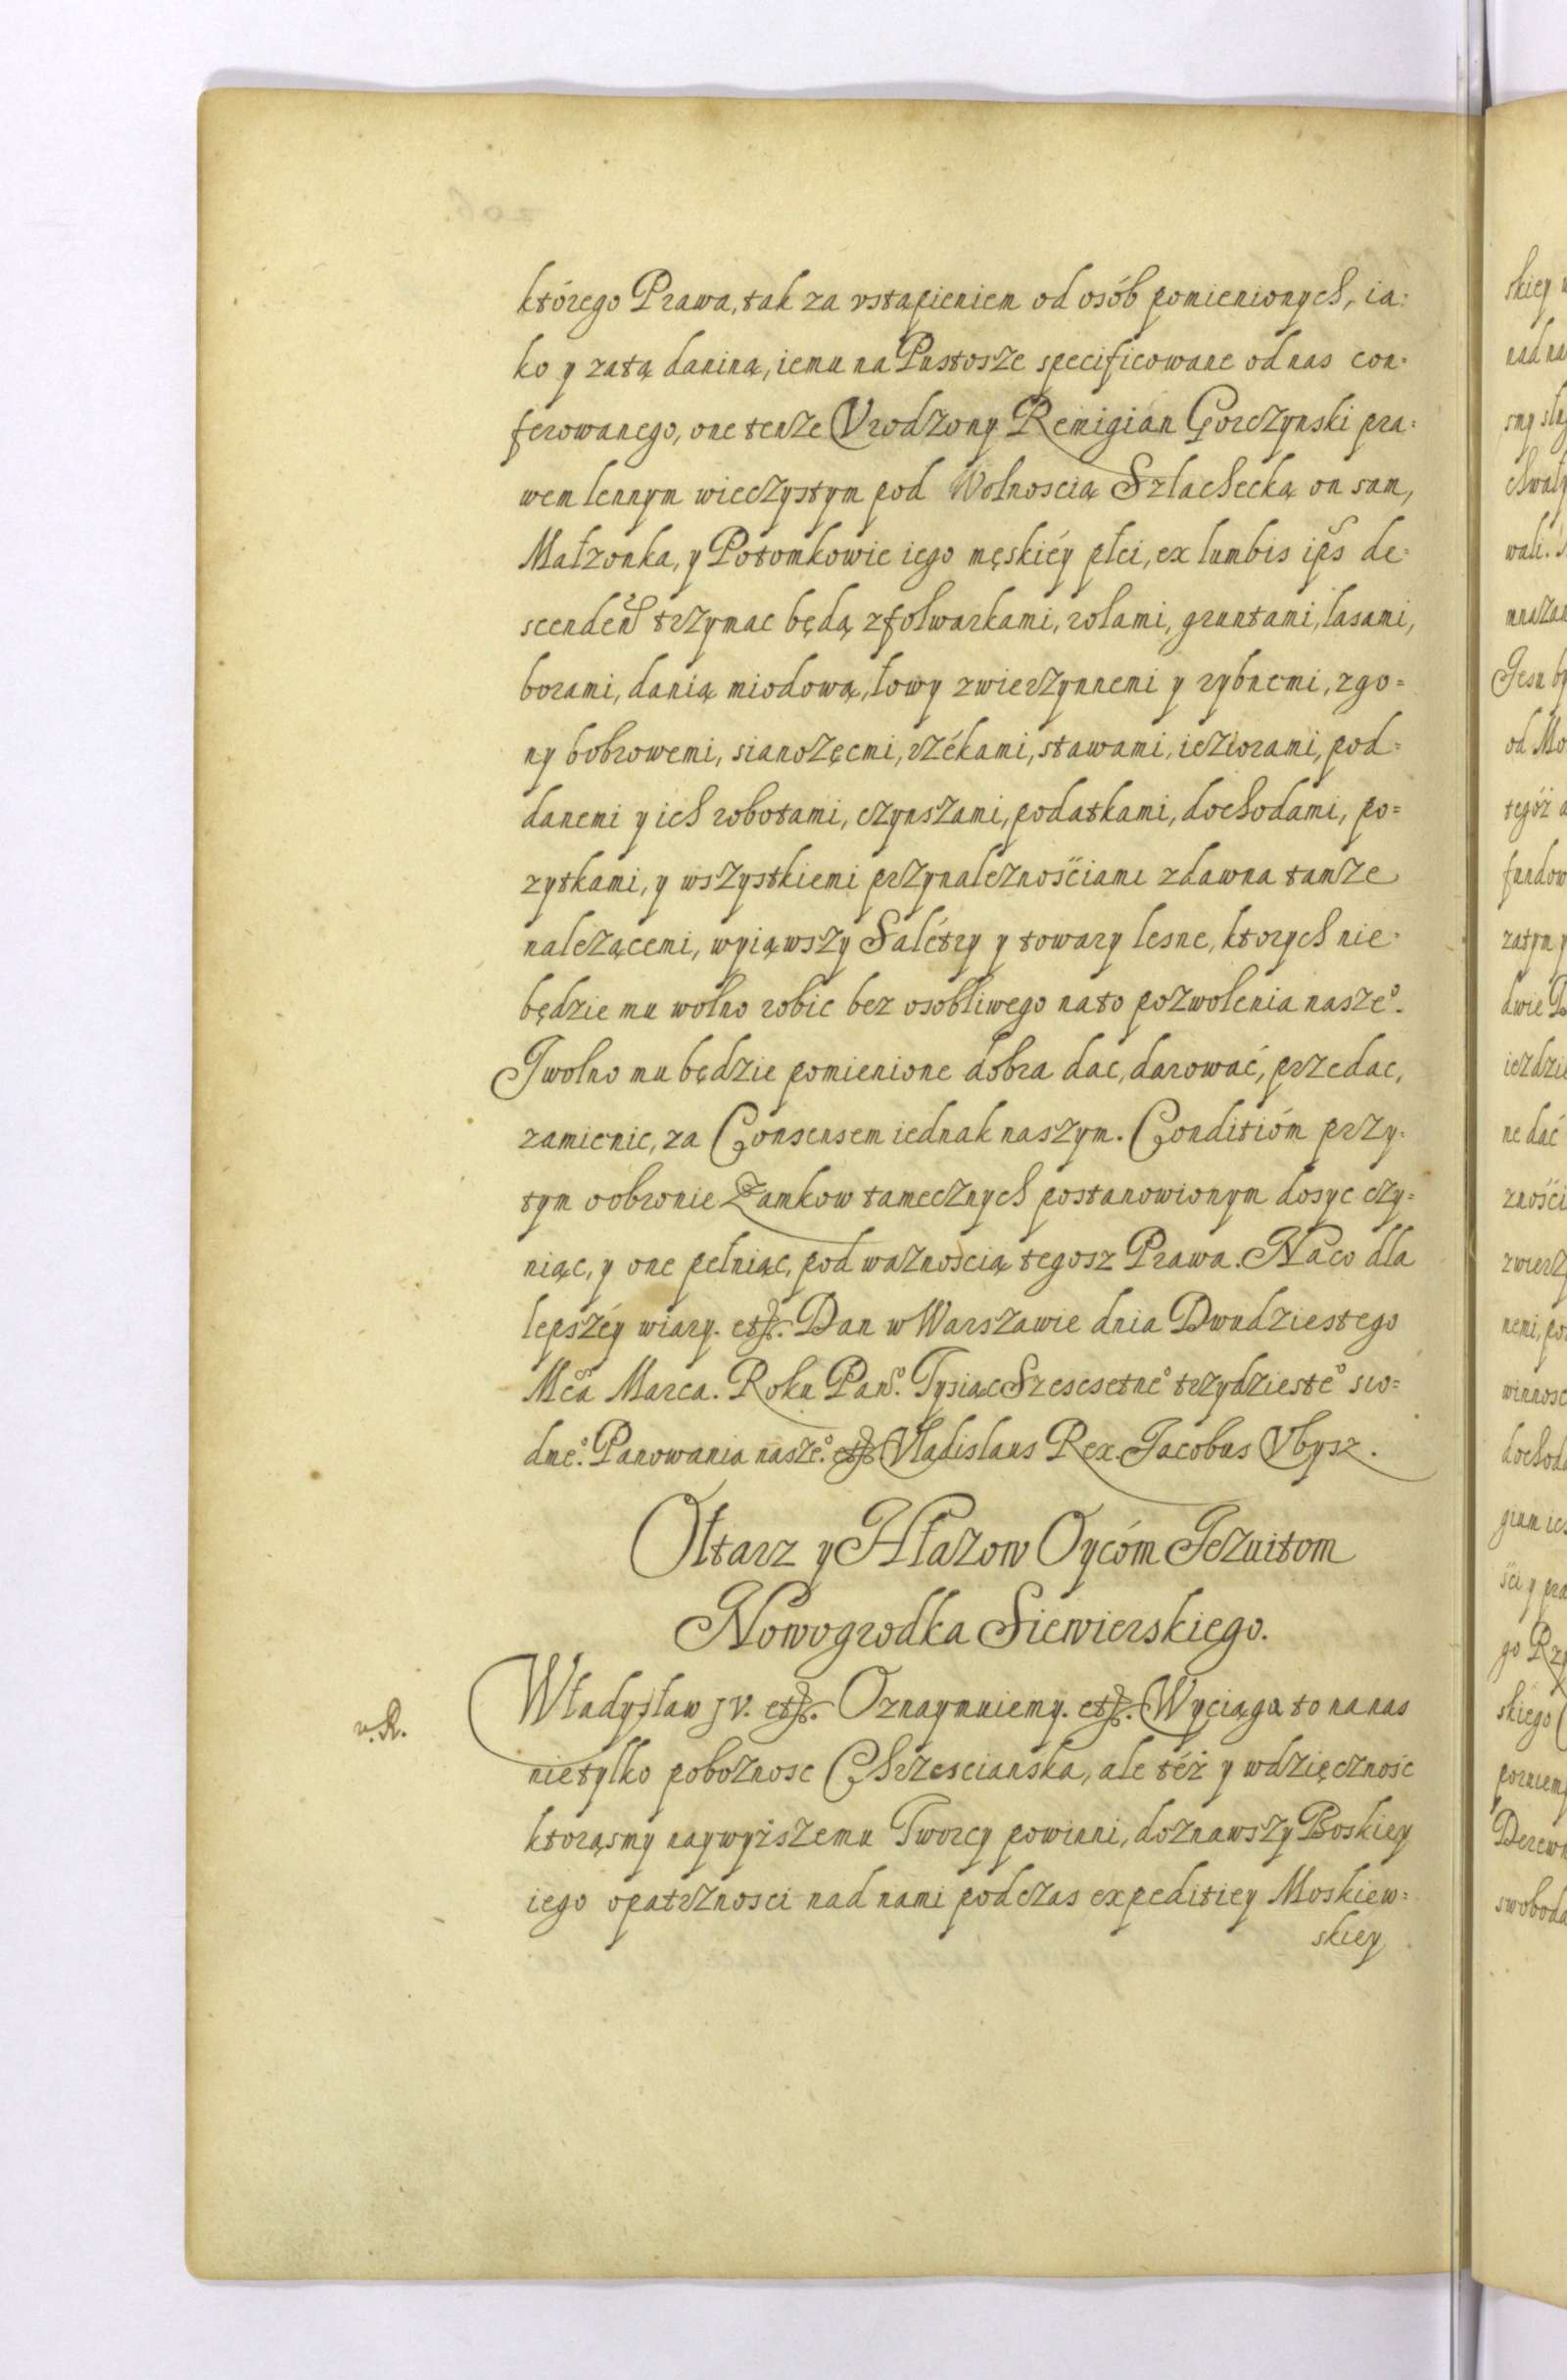 którego Prawa, tak za vstąpieniem od osób pomienionych, ia:
ko y zatą daniną, iemu na Pustosze specificowane od nas con:
ferowanego, one tenże Vrodzony Remigian Gorczynski pra:
wem lennym wieczystym pod Wolnoscią Szlachecką on sam,
Małzonka, y Potomkowie iego męskiéy płci, ex lumbis ips de:
scenden trzymac będą zfolwarkami, rolami, gruntami, lasami,
borami, danią miodową, łowy zwierzynnemi y rybnemi, zgo=
ny bobrowemi, sianożęcmi, rzékami, stawami, ieziorami, pod=
danemi y ich robotami, czynszami, podatkami, dochodami, po=
zytkami, y wszystkiemi przynależnościami zdawna tamże
należącemi, wyiąwszy Salétry y towary lesne, ktorych nie:
będzie mu wolno robic bez osobliwego nato pozwolenia nasze°.
I wolno mu będzie pomienione dobra dac, darować, przedac,
zamienic, za Consensem iednak naszym. Conditióm przy:
tym oobronie Zamkow tamecznych postanowionym dosyc czy=
niąc, y one pełniąc, pod ważnoscią tegosz Prawa. Naco dla
lepszéy wiary. etc. Dan w Warszawie dnia Dwudziestego
Mca Marca. Roku Pans°. Tysiąc Szescsetne° trzydzieste° sio=
dme°. Panowania nasze°. etc Vladislaus Rex. Jacobus Vbysz.
Ołtarz y Hłazow Oycóm Jezuitom
Nowogrodka Siewierskiego.
v. R.
Władysław JV. etc. Oznaymuiemy. etc. Wyciąga to nanas
nietylko pobożnosc Chrzescianska, ale téż y wdzięcznośc
ktorąsmy naywyższemu Tworcy powinni, doznawszy Boskiey
iego opatrznosci nad nami podczas expeditiey Moskiew=
skiey